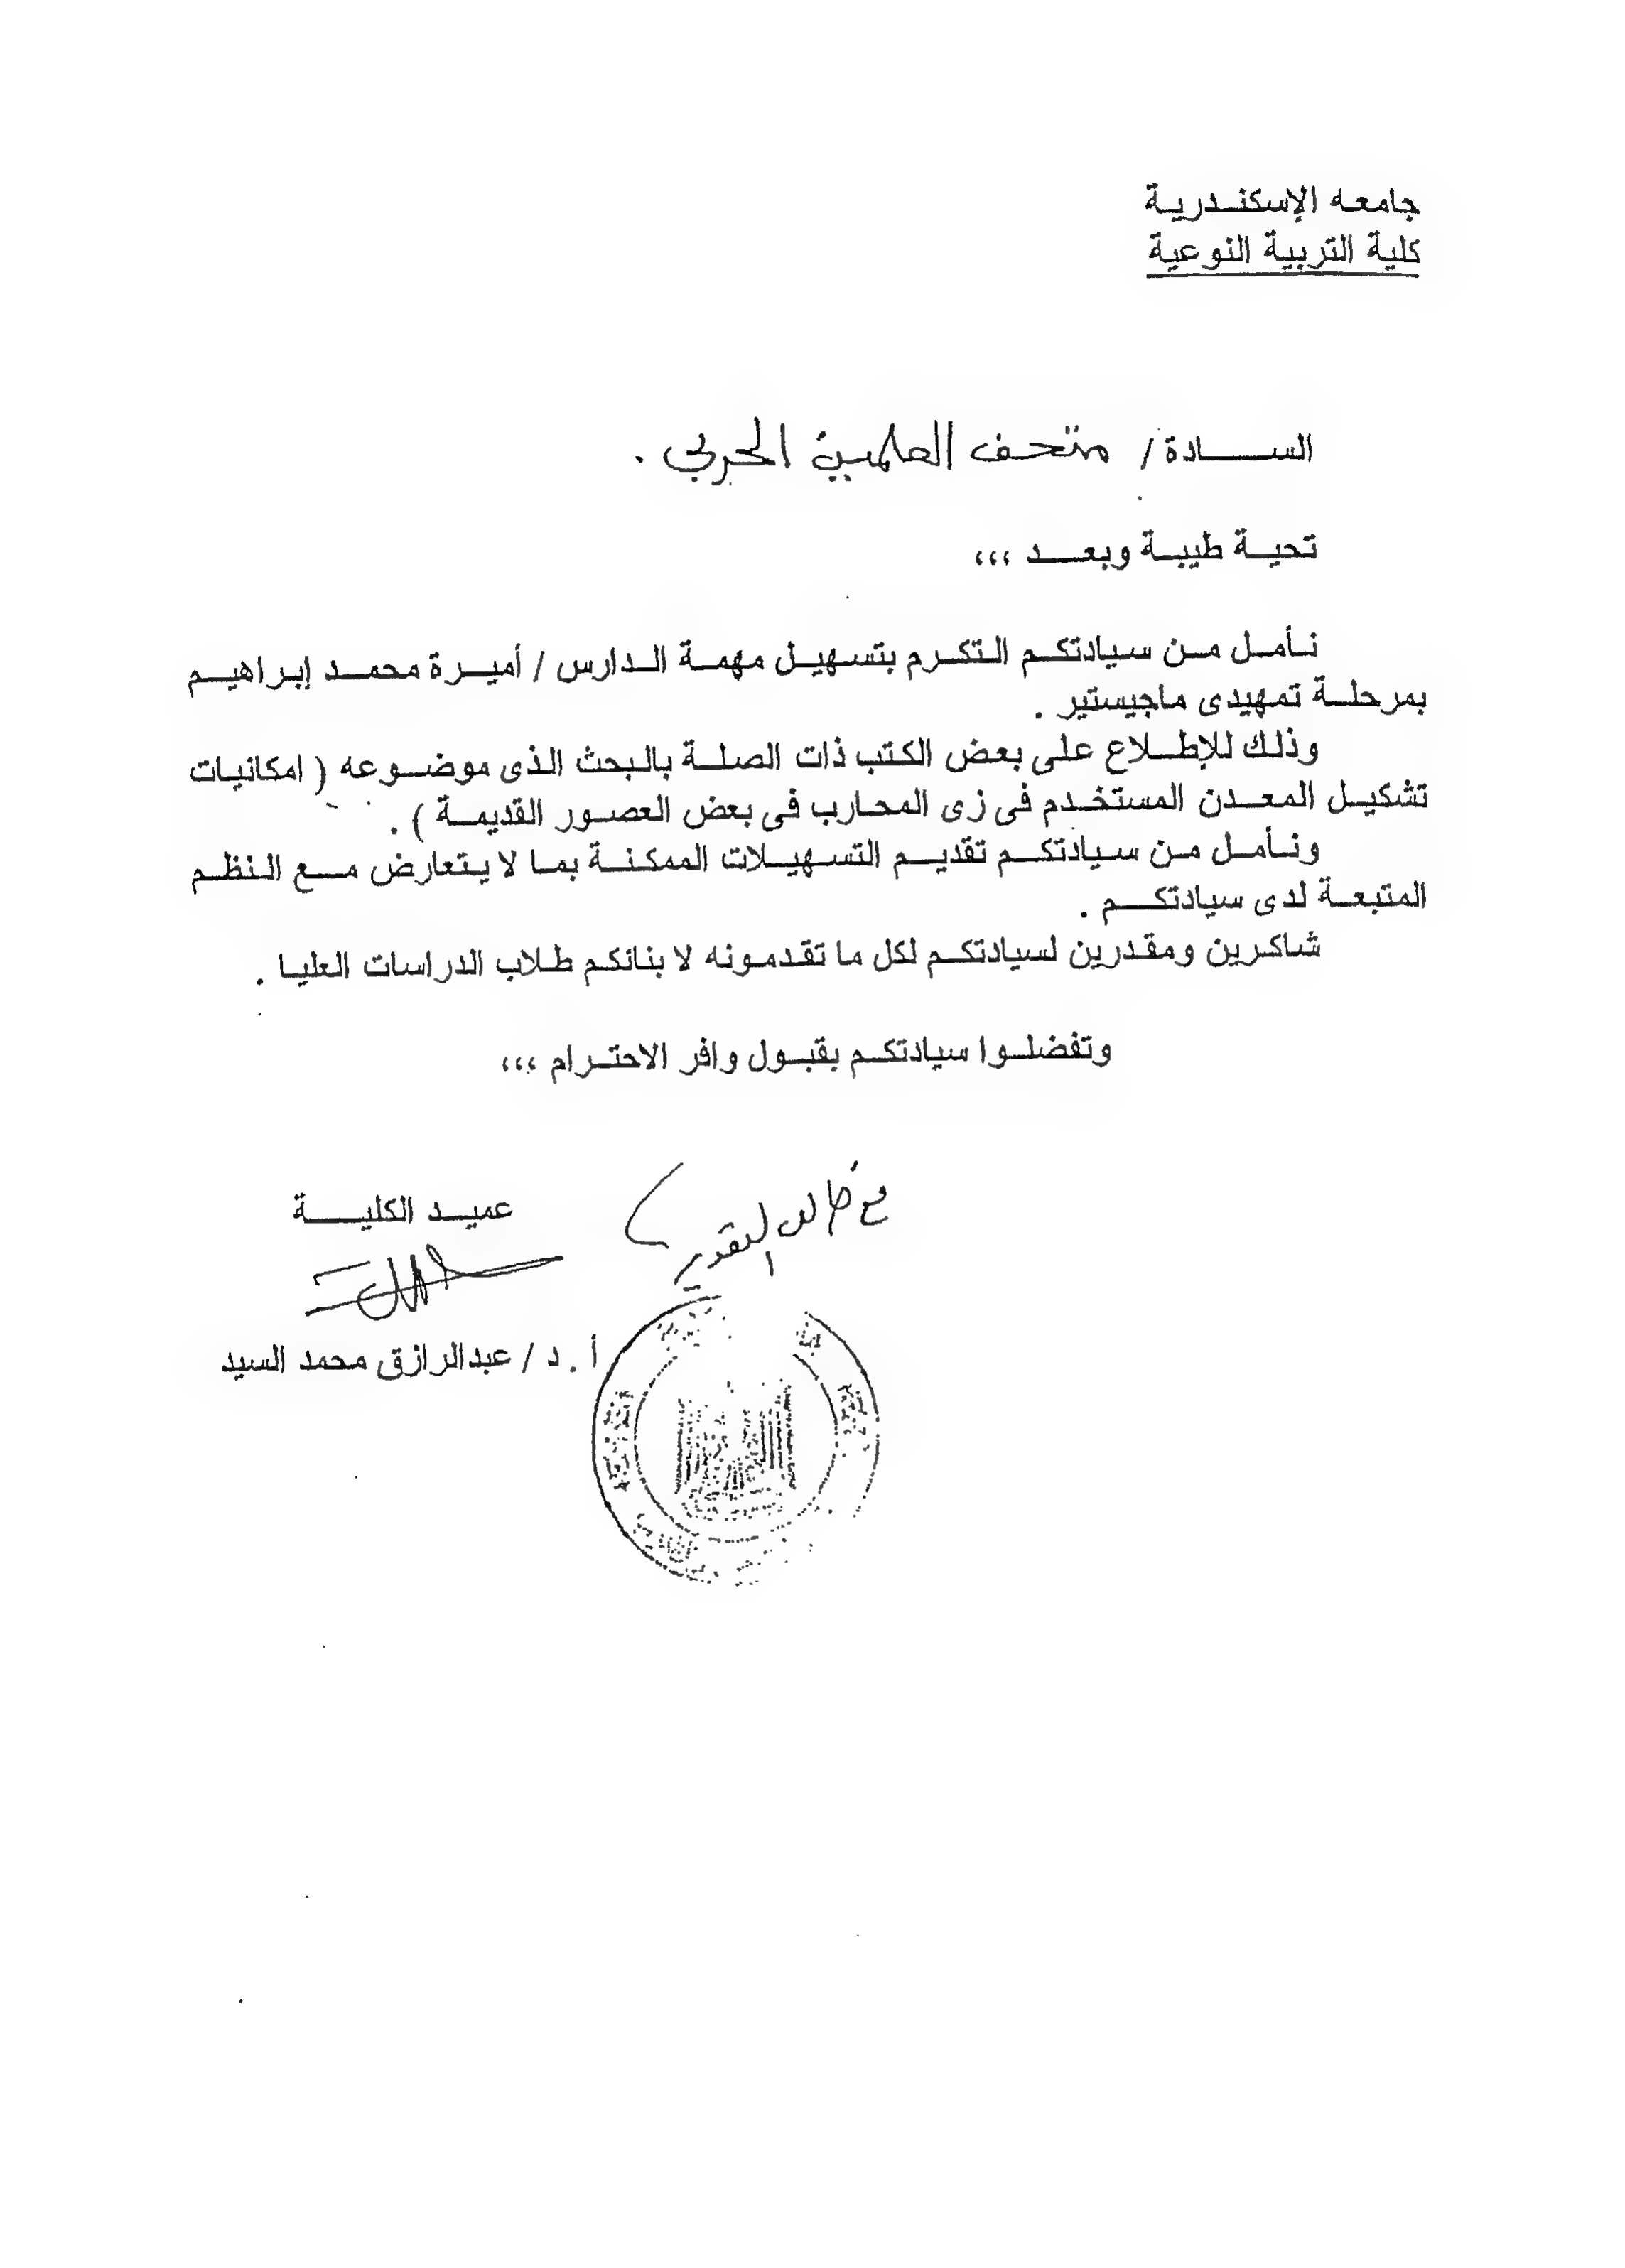 جامعه الإسكندرية
كلية التربية النوعية
السادة / متحف العلمين الحربي .
تحية طيبة وبعد ،،،
نأمل من سيادتكم التكرم بتسهيل مهمة الدارس / أميرة محمد إبراهيم
بمرحلة تمهيدى ماجيستير .
وذلك للإطلاع على بعض الكتب ذات الصلة بالبحث الذى موضوعه ( امكانيات
تشكيل المعدن المستخدم فى زى المحارب فى بعض العصور القديمة ) .
ونأمل من سيادتكم تقديم التسهيلات الممكنة بما لا يتعارض مع النظم
المتبعة لدى سيادتكم .
شاكرين ومقدرين لسيادتكم لكل ما تقدمونه لا بنائكم طلاب الدراسات العليا .
وتفضلوا سيادتكم بقبول وافر الاحترام ،،،
مع خالص التقدير
عميد الكلية
أ . د / عبدالرازق محمد السيد